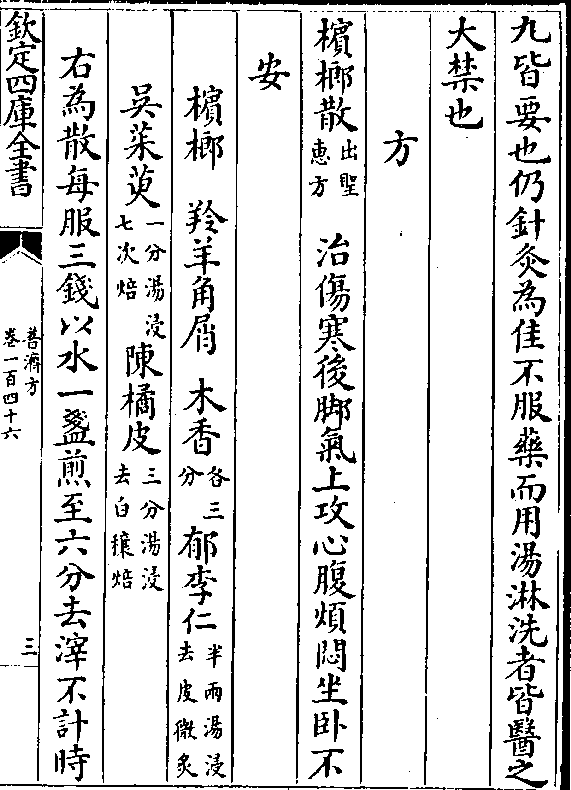 九皆要也仍針灸為佳不服藥而用湯淋洗者皆醫之
大禁也
方
檳榔散出聖惠方 治傷寒後脚氣上攻心腹煩悶坐卧不
安
檳榔 羚羊角屑 木香各三分 郁李仁半兩湯浸去皮微炙
吳茱萸一分湯浸七次焙 陳橘皮三分湯浸去白穰焙
右為散每服三錢以水一盞煎至六分去滓不計時
欽定四庫全書
普濟方
卷一百四十六
三